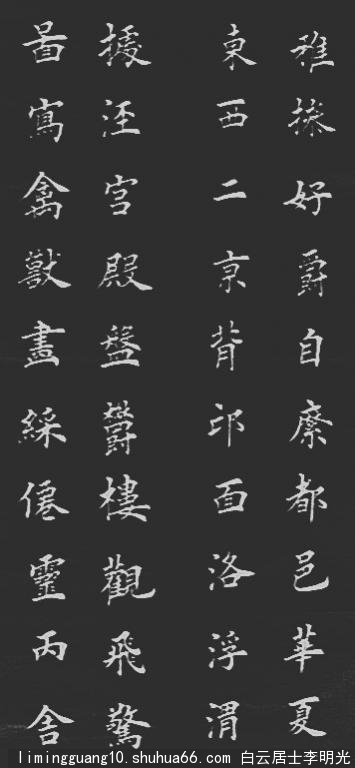 雅操好爵自縻都邑華夏
東西二京背邙面洛浮渭
據涇宮殿盤鬱樓觀飛驚
啚寫禽獸畫綵僊靈丙舍
limingguang10.shuhua66.com 白云居士李明光